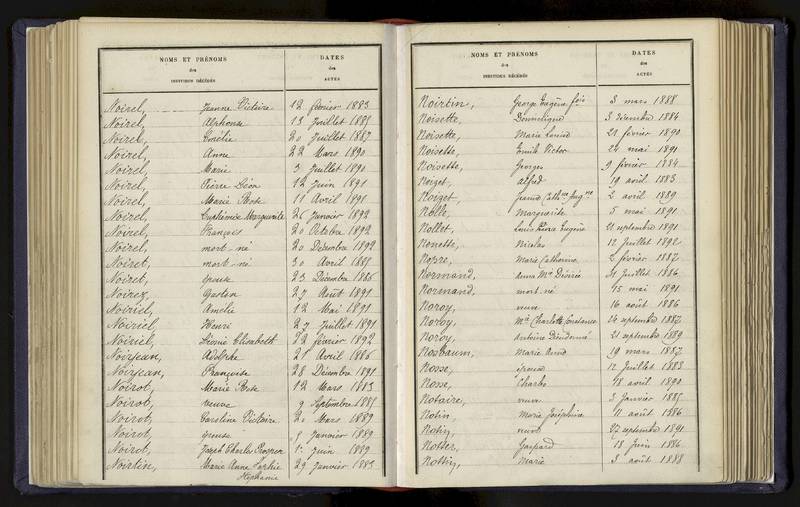 NOMS ET PRÉNOMS
des
INDIVIDUS DÉCÉDÉS
DATES
des
ACTES
Noirel, Jeanne Victoire 12 février 1883
Noirel, Alphonse 13 Juillet 1885
Noirel, Aurélie 20 Juillet 1887
Noirel, Anne 22 Mars 1890
Noirel, Marie 3 Juillet 1890
Noirel, Pierre Léon 12 Juin 1891
Noirel, Marie Rose 11 Avril 1891
Noirel, Euphémie Marguerite 26 Janvier 1892
Noirel, François 20 Octobre 1892
Noirel, mort-né 20 Décembre 1892
Noiret, mort-né 30 Avril 1885
Noiret, épouse 23 Décembre 1886
Noirez, Gaston 27 Août 1891
Noiriel, Amélie 12 Mai 1891
Noiriel, Henri 27 Juillet 1891
Noiriel, Léonie Elisabeth 22 février 1892
Noirjean, Adolphe 21 Avril 1886
Noirjean, Françoise 28 Décembre 1891
Noirot, Marie Rose 12 Mars 1883
Noirot, veuve 9 Septembre 1885
Noirot, Caroline Victoire 20 Mars 1889
Noirot, épouse 9 Janvier 1889
Noirot, Joseph Charles Prosper 1er Juin 1889
Noirtin, Marie Anne Sophie 29 Janvier 1883
Stéphanie
NOMS ET PRÉNOMS
des
INDIVIDUS DÉCÉDÉS
DATES
des
ACTES
Noirtin, George Eugène 3 mars 1888
Noisette, Dominique 3 décembre 1884
Noisette, Marie Louise 21 février 1890
Noisette, Emile Victor 24 mai 1891
Noisette, Georges 9 février 1884
Noizet, Alfred 19 avril 1883
Noizet, 2 avril 1889
Nolle, Marguerite 5 mai 1891
Nollet, Louis Pierre Eugène 21 septembre 1891
Nonette, Nicolas 12 Juillet 1892
Nopre, Marie Catherine 2 février 1887
Normand, Anna Mie Désirée 31 Juillet 1886
Normand, mort-né 15 mai 1891
Noroy, veuve 16 août 1886
Noroy, Mie Charlotte Constance 24 septembre 1887
Noroy, Antoine Dieudonné 21 septembre 1889
Nosbaum, Marie Anne 19 mars 1887
Nosse, épouse 12 Juillet 1883
Nosse, Charles 18 avril 1890
Notaire, veuve 3 Janvier 1885
Notin, Marie Joséphine 11 août 1886
Notin, veuve 27 septembre 1891
Notter, Gaspard 18 Juin 1886
Nottin, Marie 3 août 1888